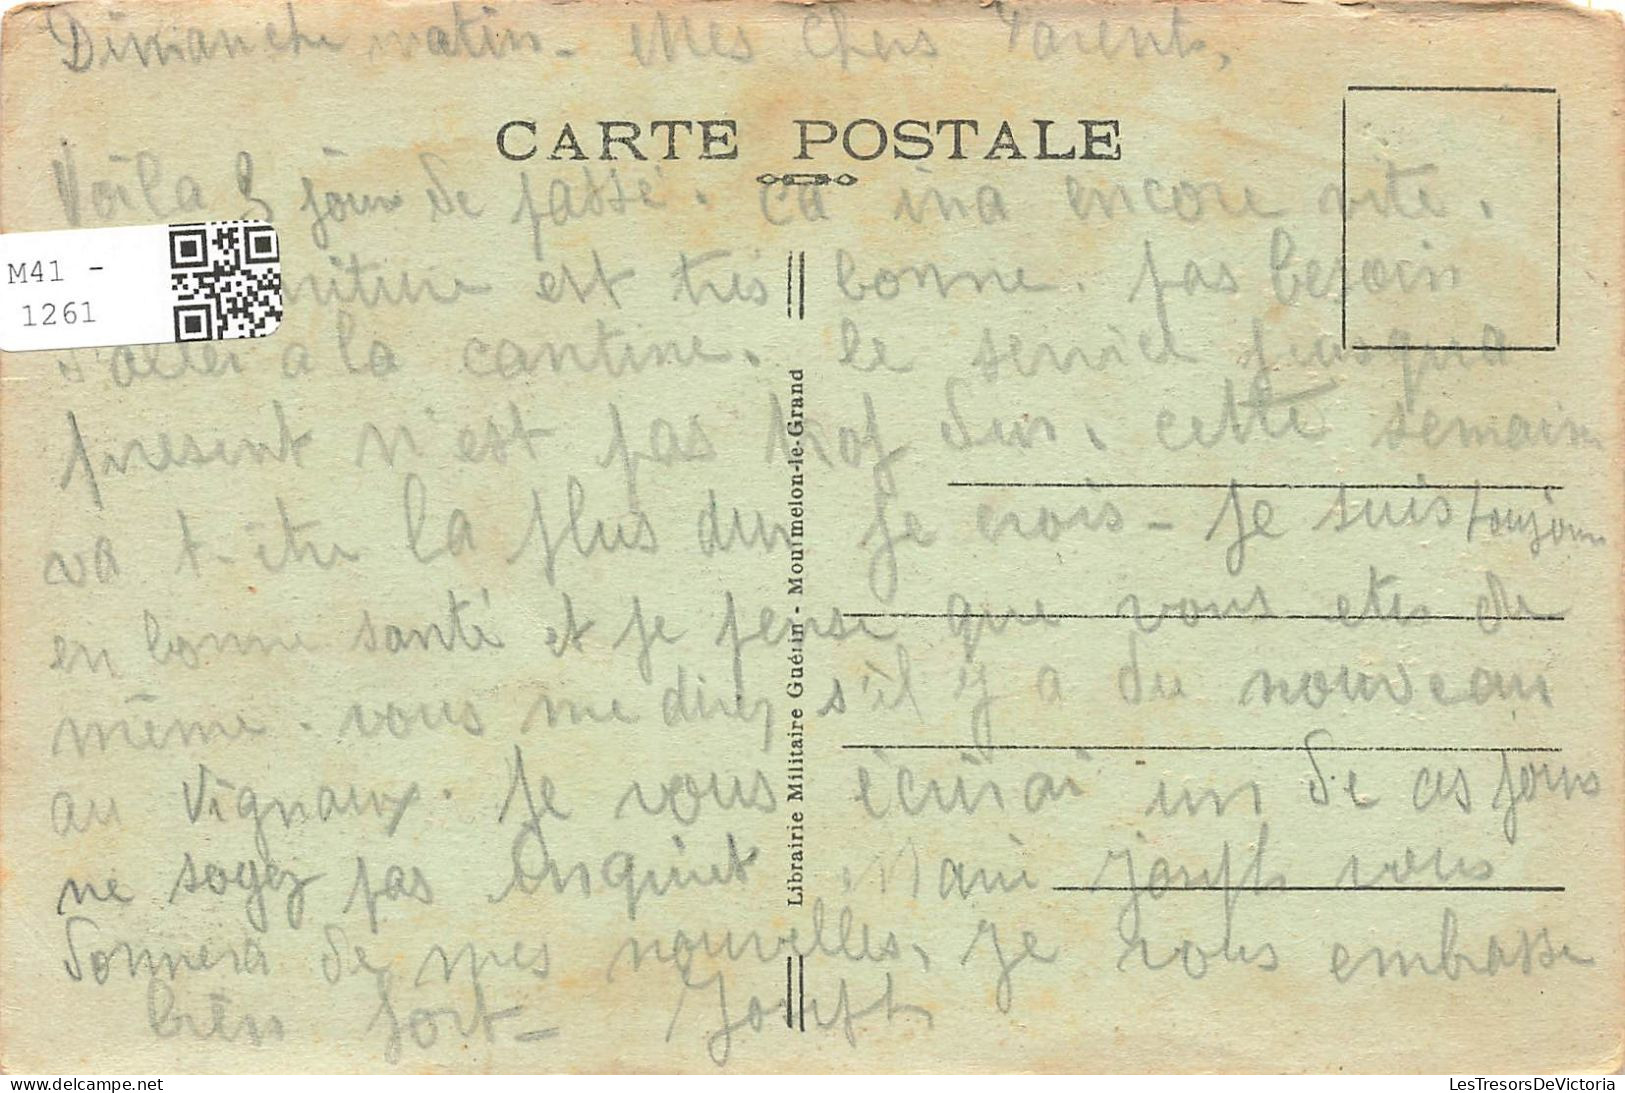 Dimanche matin - Mes Chers Parents,
CARTE POSTALE
Voila 3 jours de passé. ça ira encore vite.
M41 -
1261
est très bonne. pas besoin
d'aller a la cantine. le service jusqu'a
present n'est pas trop dur. cette semaine
va t-être la plus dur je crois - je suis toujours
en bonne santé et je pense que vous etes de
même. vous me direz s'il y a du nouveau
au Vignaux. Je vous écrirai un de ces jours
ne soyez pas inquiet Joseph vous
donnera de mes nouvelles, je vous embrasse
bien fort - Joseph
Librairie Militaire Guérin - Mourmelon-le-Grand
LesTresorsDeVictoria